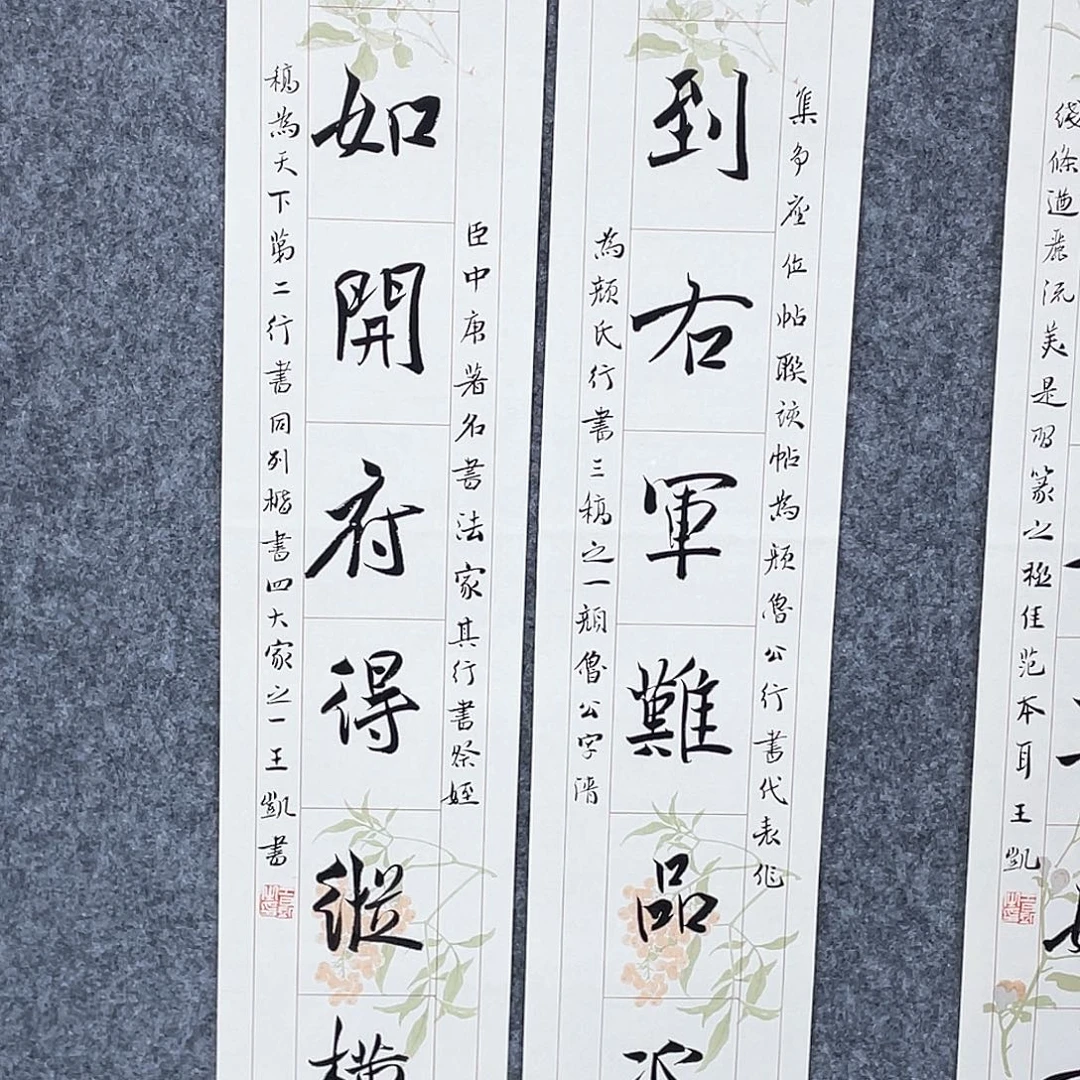 集争座位帖联该帖为颜鲁公行书代表作
到右軍難品
为颜氏行書三稿之一颜魯公字清
臣中唐著名書法家其行書祭姪
如開府得縱橫
稿为天下第二行書同列楷書四大家之一王凱書
线條遒麗流美是習篆之極佳范本耳王凱